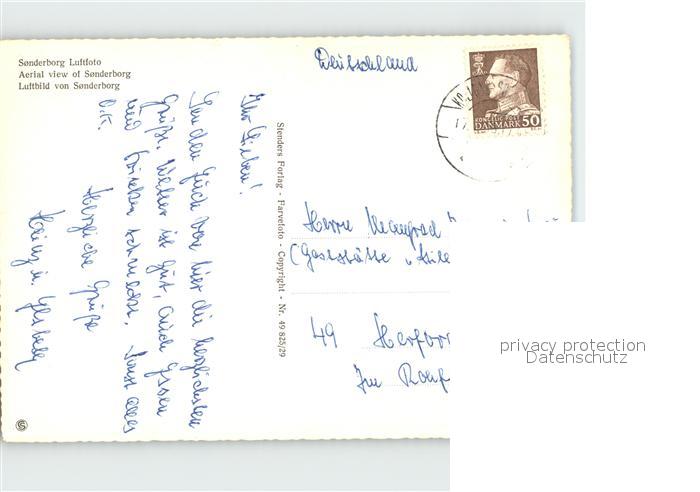 Sønderborg Luftfoto
Aerial view of Sønderborg
Luftbild von Sønderborg
Deutschland
KONGELIG POST
DANMARK 50
Ihr Lieben!
Senden Euch von hier die herzlichsten
Grüße, Wetter ist gut, auch Essen
und Trinken schmeckt. Sonst alles
O.K.
Herzliche Grüße
Heinz u.
Stenders Forlag - Farvefoto - Copyright - Nr. 49 825/29
Herrn
(Gaststätte
49 Herfor
Im
privacy protection
Datenschutz